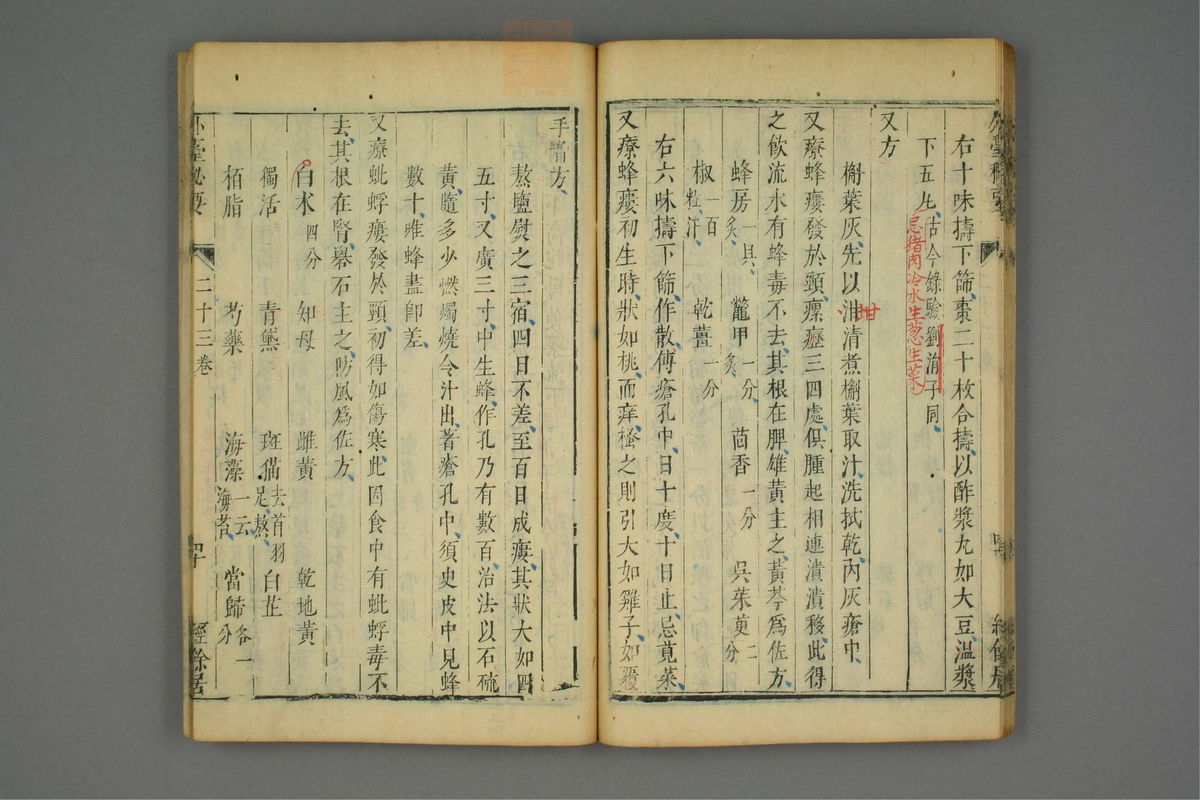 右十味擣下篩棗二十枚合擣以酢漿九如大豆溫漿
下五九古今錄驗劉涓子同
忌猪肉冷水生葱生菜
又方
槲葉灰先以泔清煮槲葉取汁洗拭乾內灰瘡中
甘
又療蜂瘻發於頸瘰癧三四處俱腫起相連潰潰移此得
之飲流水有蜂毒不去其根在脾雄黃主之黃芩為佐方
蜂房一具炙 鼈甲一分炙 茴香一分 吳茱萸二分
椒一百粒汗 乾薑一分
右六味擣下篩作散傅瘡孔中日十度十日止忌莧菜
又療蜂瘻初生時狀如桃而痒搔之則引大如雞子如覆
手者方
熬鹽熨之三宿四日不差至百日成瘻其狀大如四
五寸又廣三寸中生蜂作孔乃有數百治法以石硫
黃隨多少燃燭燒令汁出著瘡孔中須臾皮中見蜂
數十唯蜂盡卽差
又療蚍蜉瘻發於頸初得如傷寒此因食中有蚍蜉毒不
去其根在腎礜石主之防風為佐方
白朮四分 知母 雌黃 乾地黃
獨活 青黛 斑猫去首羽足熬 白芷
栢脂 芍藥 海藻一云海苔 當歸各一分
外臺秘要 二十三卷 四十 經餘居